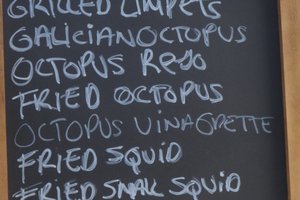 GRILLED LIMPETS
GALICIAN OCTOPUS
OCTOPUS REJO
FRIED OCTOPUS
OCTOPUS VINAGRETTE
FRIED SQUID
FRIED SMALL SQUID